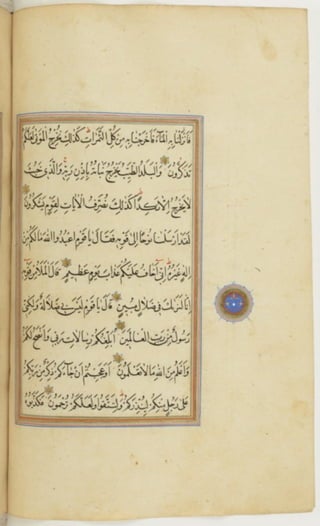 فَأَنْزَلْنَا بِهِ الْمَاءَ فَأَخْرَجْنَا بِهِ مِنْ كُلِّ الثَّمَرَاتِ كَذَلِكَ نُخْرِجُ الْمَوْتَى لَعَلَّكُمْ
تَذَكَّرُونَ وَالْبَلَدُ الطَّيِّبُ يَخْرُجُ نَبَاتُهُ بِإِذْنِ رَبِّهِ وَالَّذِي خَبُثَ
لَا يَخْرُجُ إِلَّا نَكِدًا كَذَلِكَ نُصَرِّفُ الْآيَاتِ لِقَوْمٍ يَشْكُرُونَ
لَقَدْ أَرْسَلْنَا نُوحًا إِلَى قَوْمِهِ فَقَالَ يَا قَوْمِ اعْبُدُوا اللَّهَ مَا لَكُمْ مِنْ
إِلَهٍ غَيْرُهُ إِنِّي أَخَافُ عَلَيْكُمْ عَذَابَ يَوْمٍ عَظِيمٍ قَالَ الْمَلَأُ مِنْ قَوْمِهِ
إِنَّا لَنَرَاكَ فِي ضَلَالٍ مُبِينٍ قَالَ يَا قَوْمِ لَيْسَ بِي ضَلَالَةٌ وَلَكِنِّي
رَسُولٌ مِنْ رَبِّ الْعَالَمِينَ أُبَلِّغُكُمْ رِسَالَاتِ رَبِّي وَأَنْصَحُ لَكُمْ
وَأَعْلَمُ مِنَ اللَّهِ مَا لَا تَعْلَمُونَ أَوَعَجِبْتُمْ أَنْ جَاءَكُمْ ذِكْرٌ مِنْ رَبِّكُمْ
عَلَى رَجُلٍ مِنْكُمْ لِيُنْذِرَكُمْ وَلِتَتَّقُوا وَلَعَلَّكُمْ تُرْحَمُونَ فَكَذَّبُوهُ